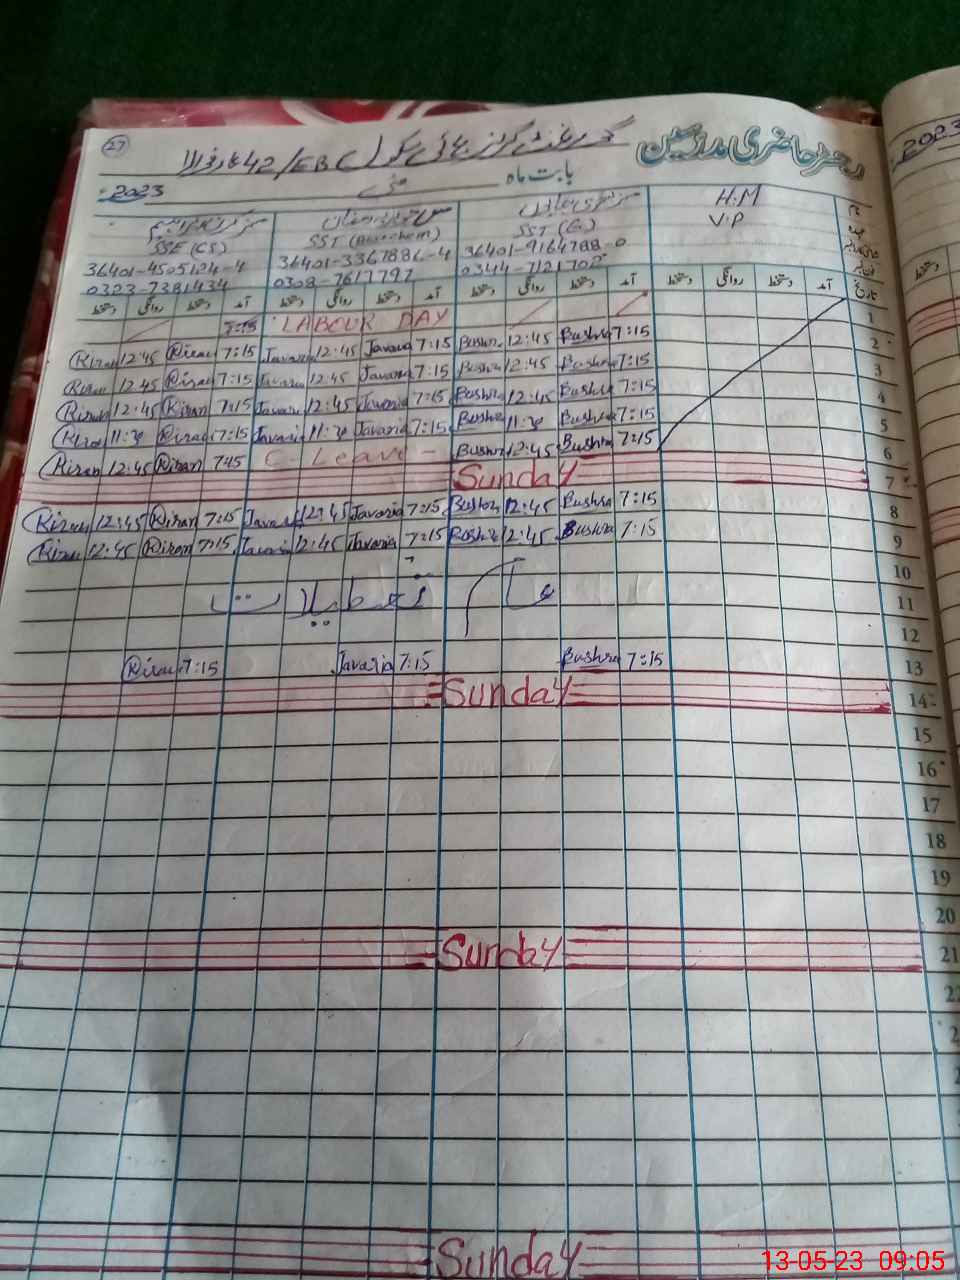 27
رجسٹر حاضری مدرسین
گورنمنٹ گرلز ہائی سکول 42/EB عارفوالا
2023
بابت ماہ مئی 2023
H.M
V.P
SST (G)
36401-9164788-0
0344-7121702
SST (Bio-chem)
36401-3367886-4
0308-7617797
SSE (CS)
36401-4505124-4
0323-7381434
تاریخ آمد دستخط روانگی دستخط آمد دستخط روانگی دستخط آمد دستخط روانگی دستخط آمد دستخط روانگی دستخط
7:15 LABOUR DAY 1
Kiran 12:45 Kiran 7:15 Javaria 12:45 Javaria 7:15 Bushra 12:45 Bushra 7:15 2
Kiran 12:45 Kiran 7:15 Javaria 12:45 Javaria 7:15 Bushra 12:45 Bushra 7:15 3
Kiran 12:45 Kiran 7:15 Javaria 12:45 Javaria 7:15 Bushra 12:45 Bushra 7:15 4
Kiran 11:30 Kiran 7:15 Javaria 11:30 Javaria 7:15 Bushra 11:30 Bushra 7:15 5
Kiran 12:45 Kiran 7:15 C-Leave- Bushra 12:45 Bushra 7:15 6
Sunday 7
Kiran 12:45 Kiran 7:15 Javaria 12:45 Javaria 7:15 Bushra 12:45 Bushra 7:15 8
Kiran 12:45 Kiran 7:15 Javaria 12:45 Javaria 7:15 Bushra 12:45 Bushra 7:15 9
10
عام تعطیلات 11
12
Kiran 7:15 Javaria 7:15 Bushra 7:15 13
=Sunday= 14
15
16
17
18
19
20
=Sunday= 21
22
=Sunday=
13-05-23 09:05